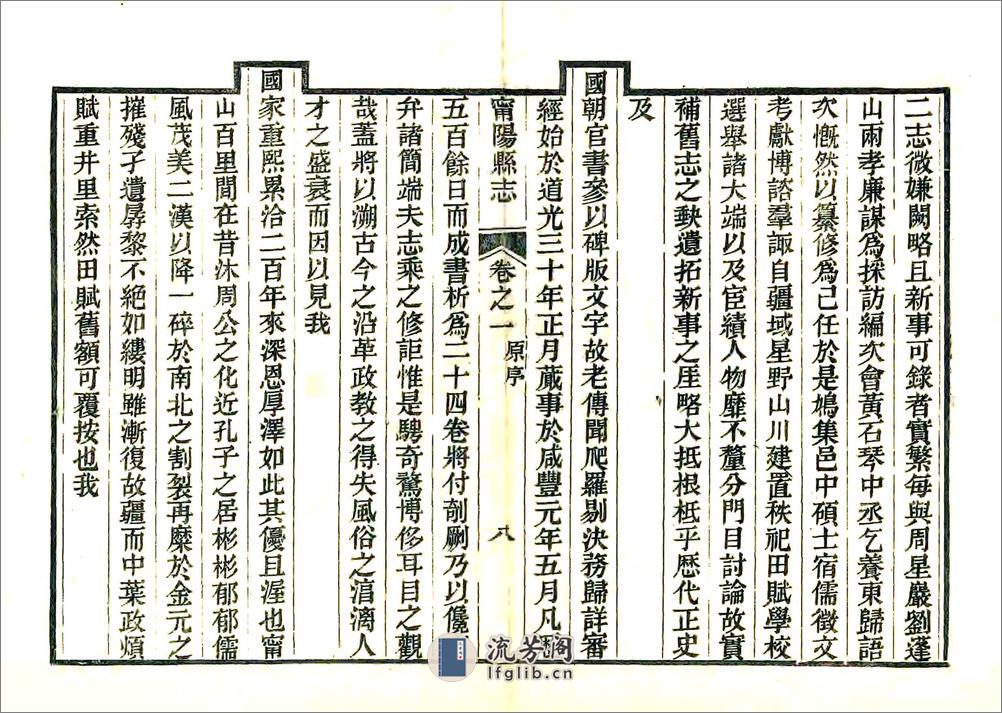 二志微嫌闕略且新事可錄者實繁每與周星巖劉蓬
山兩孝廉謀爲採訪編次會黃石琴中丞乞養東歸語
次慨然以纂修爲己任於是鳩集邑中碩士宿儒徵文
考獻博諮羣諏自疆域星野山川建置秩祀田賦學校
選舉諸大端以及宦績人物靡不釐分門目討論故實
補舊志之缺遺拓新事之厓略大抵根柢乎歷代正史
及
國朝官書參以碑版文字故老傳聞爬羅剔決務歸詳審
經始於道光三十年正月蕆事於咸豐元年五月凡
甯陽縣志
卷之一
原序
八
五百餘日而成書析爲二十四卷將付剞劂乃以儳
弁諸簡端夫志乘之修詎惟是騁奇驁博侈耳目之觀
哉蓋將以溯古今之沿革政教之得失風俗之淳漓人
才之盛衰而因以見我
國家重熙累洽二百年來深恩厚澤如此其優且渥也甯
山百里間在昔沐周公之化近孔子之居彬彬郁郁儒
風茂美二漢以降一碎於南北之割裂再糜於金元之
摧殘孑遺孱黎不絕如縷明雖漸復故疆而中葉政煩
賦重井里索然田賦舊額可覆按也我
流芳阁
lfglib.cn